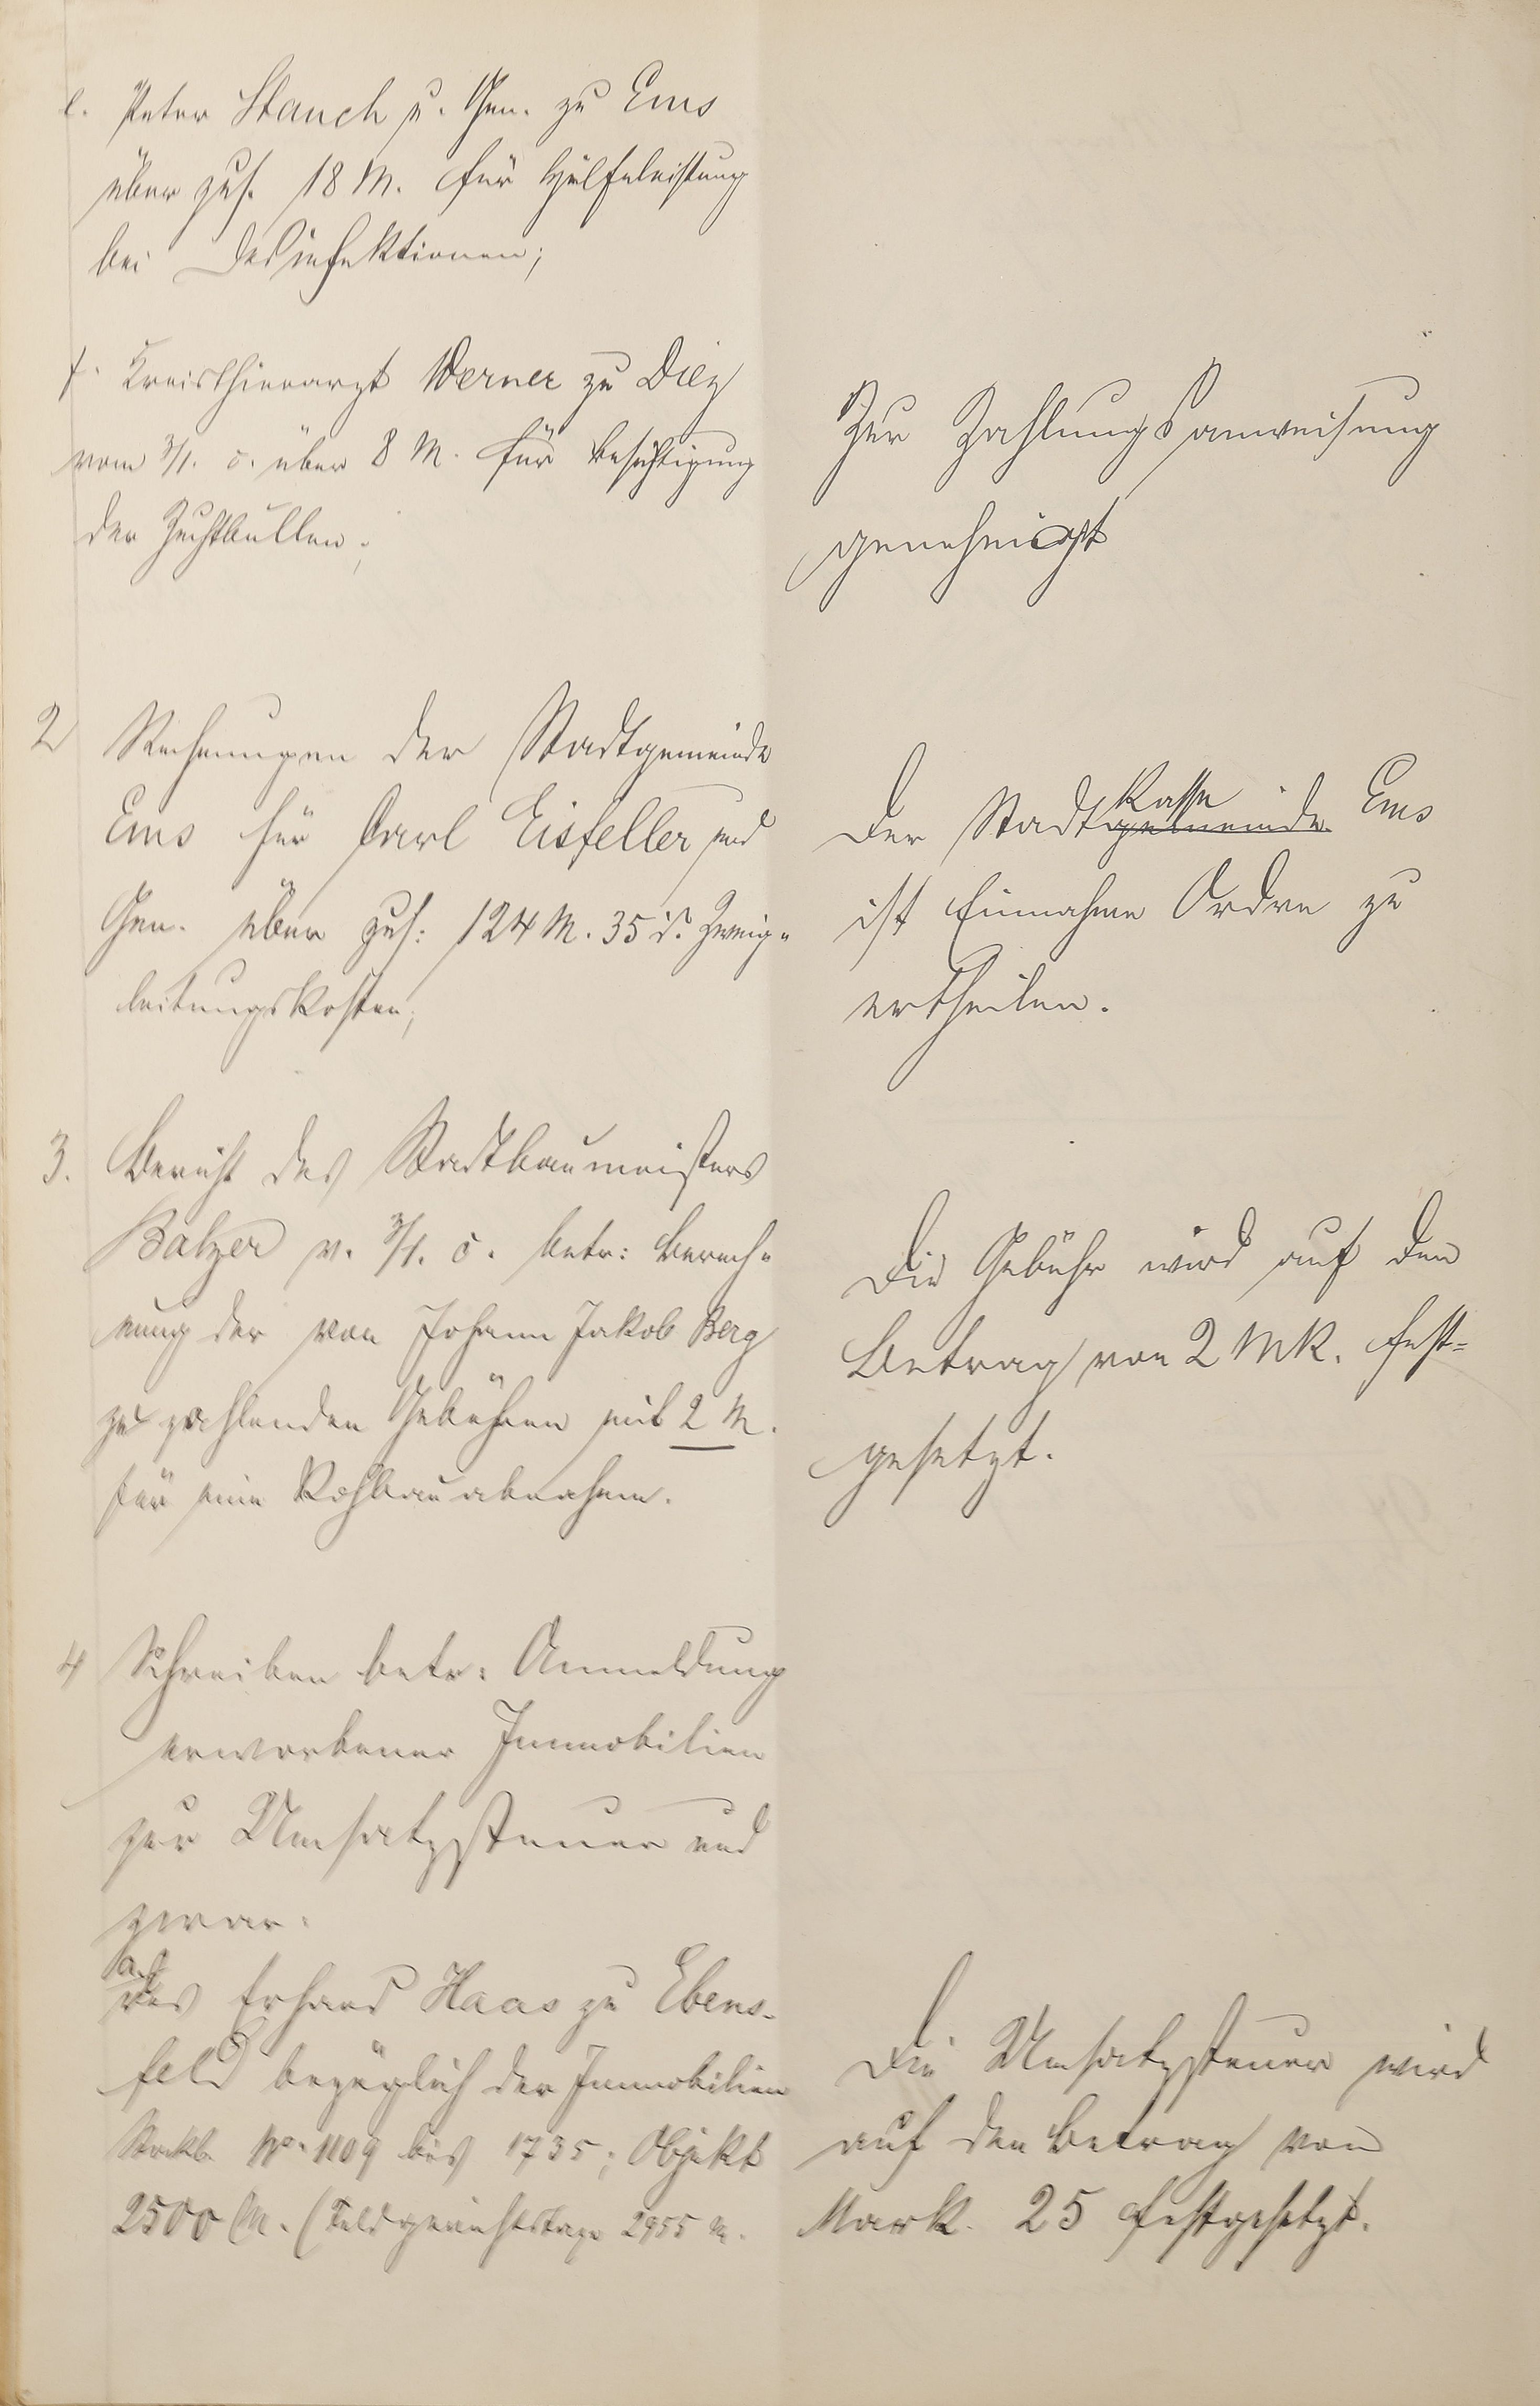 e. Peter Stauch u. Gen. zu Ems
über zus. 18 M. für Hülfeleistung
bei Desinfektionen;
f. Kreisthierarzt Werner zu Diez
vom 3/1. c. über 8 M. für Besichtigung
der Zuchtbullen;
Zur Zahlungsanweisung
genehmigt
2 Rechnungen der Stadtgemeinde
Ems für Carl Eisfeller und
Gen. über zus: 124 M. 35 d. Zweig-
leitungskosten;
Der Stadtgemeinde Kasse Ems
ist Einnahme Ordre zu
ertheilen.
3. Bericht des Stadtbaumeisters
Balzer v. 3/1. c. betr: Berech-
nung der von Johann Jakob Berg
zu zahlenden Gebühren mit 2 M.
für eine Rohbauabnahme.
Die Gebühr wird auf den
Betrag von 2 Mk. fest-
gesetzt.
4 Schreiben betr: Anmeldung
erworbener Immobilien
zur Umsatzsteuer und
zwar:
a. des Erhard Haas zu Ebens-
feld bezüglich der Immobilien
Stockb. No. 1109 bis 1735; Objekt
2500 M. (Feldgerichtstaxe 2955 M.
Die Umsatzsteuer wird
auf den Betrag von
Mark. 25 festgesetzt.